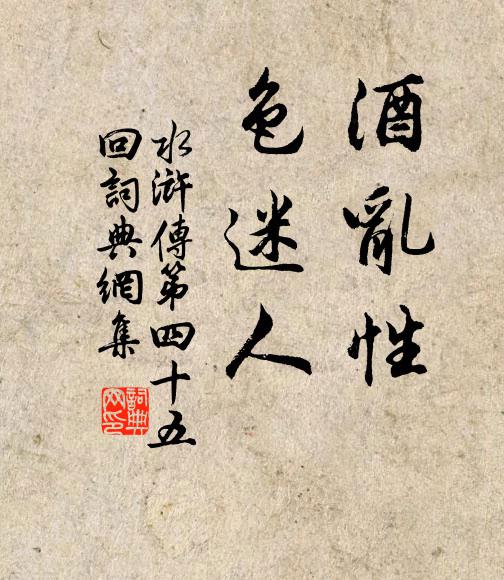 酒亂性
色迷人
水滸傳第四十五
回詞典網集
詞典
网印